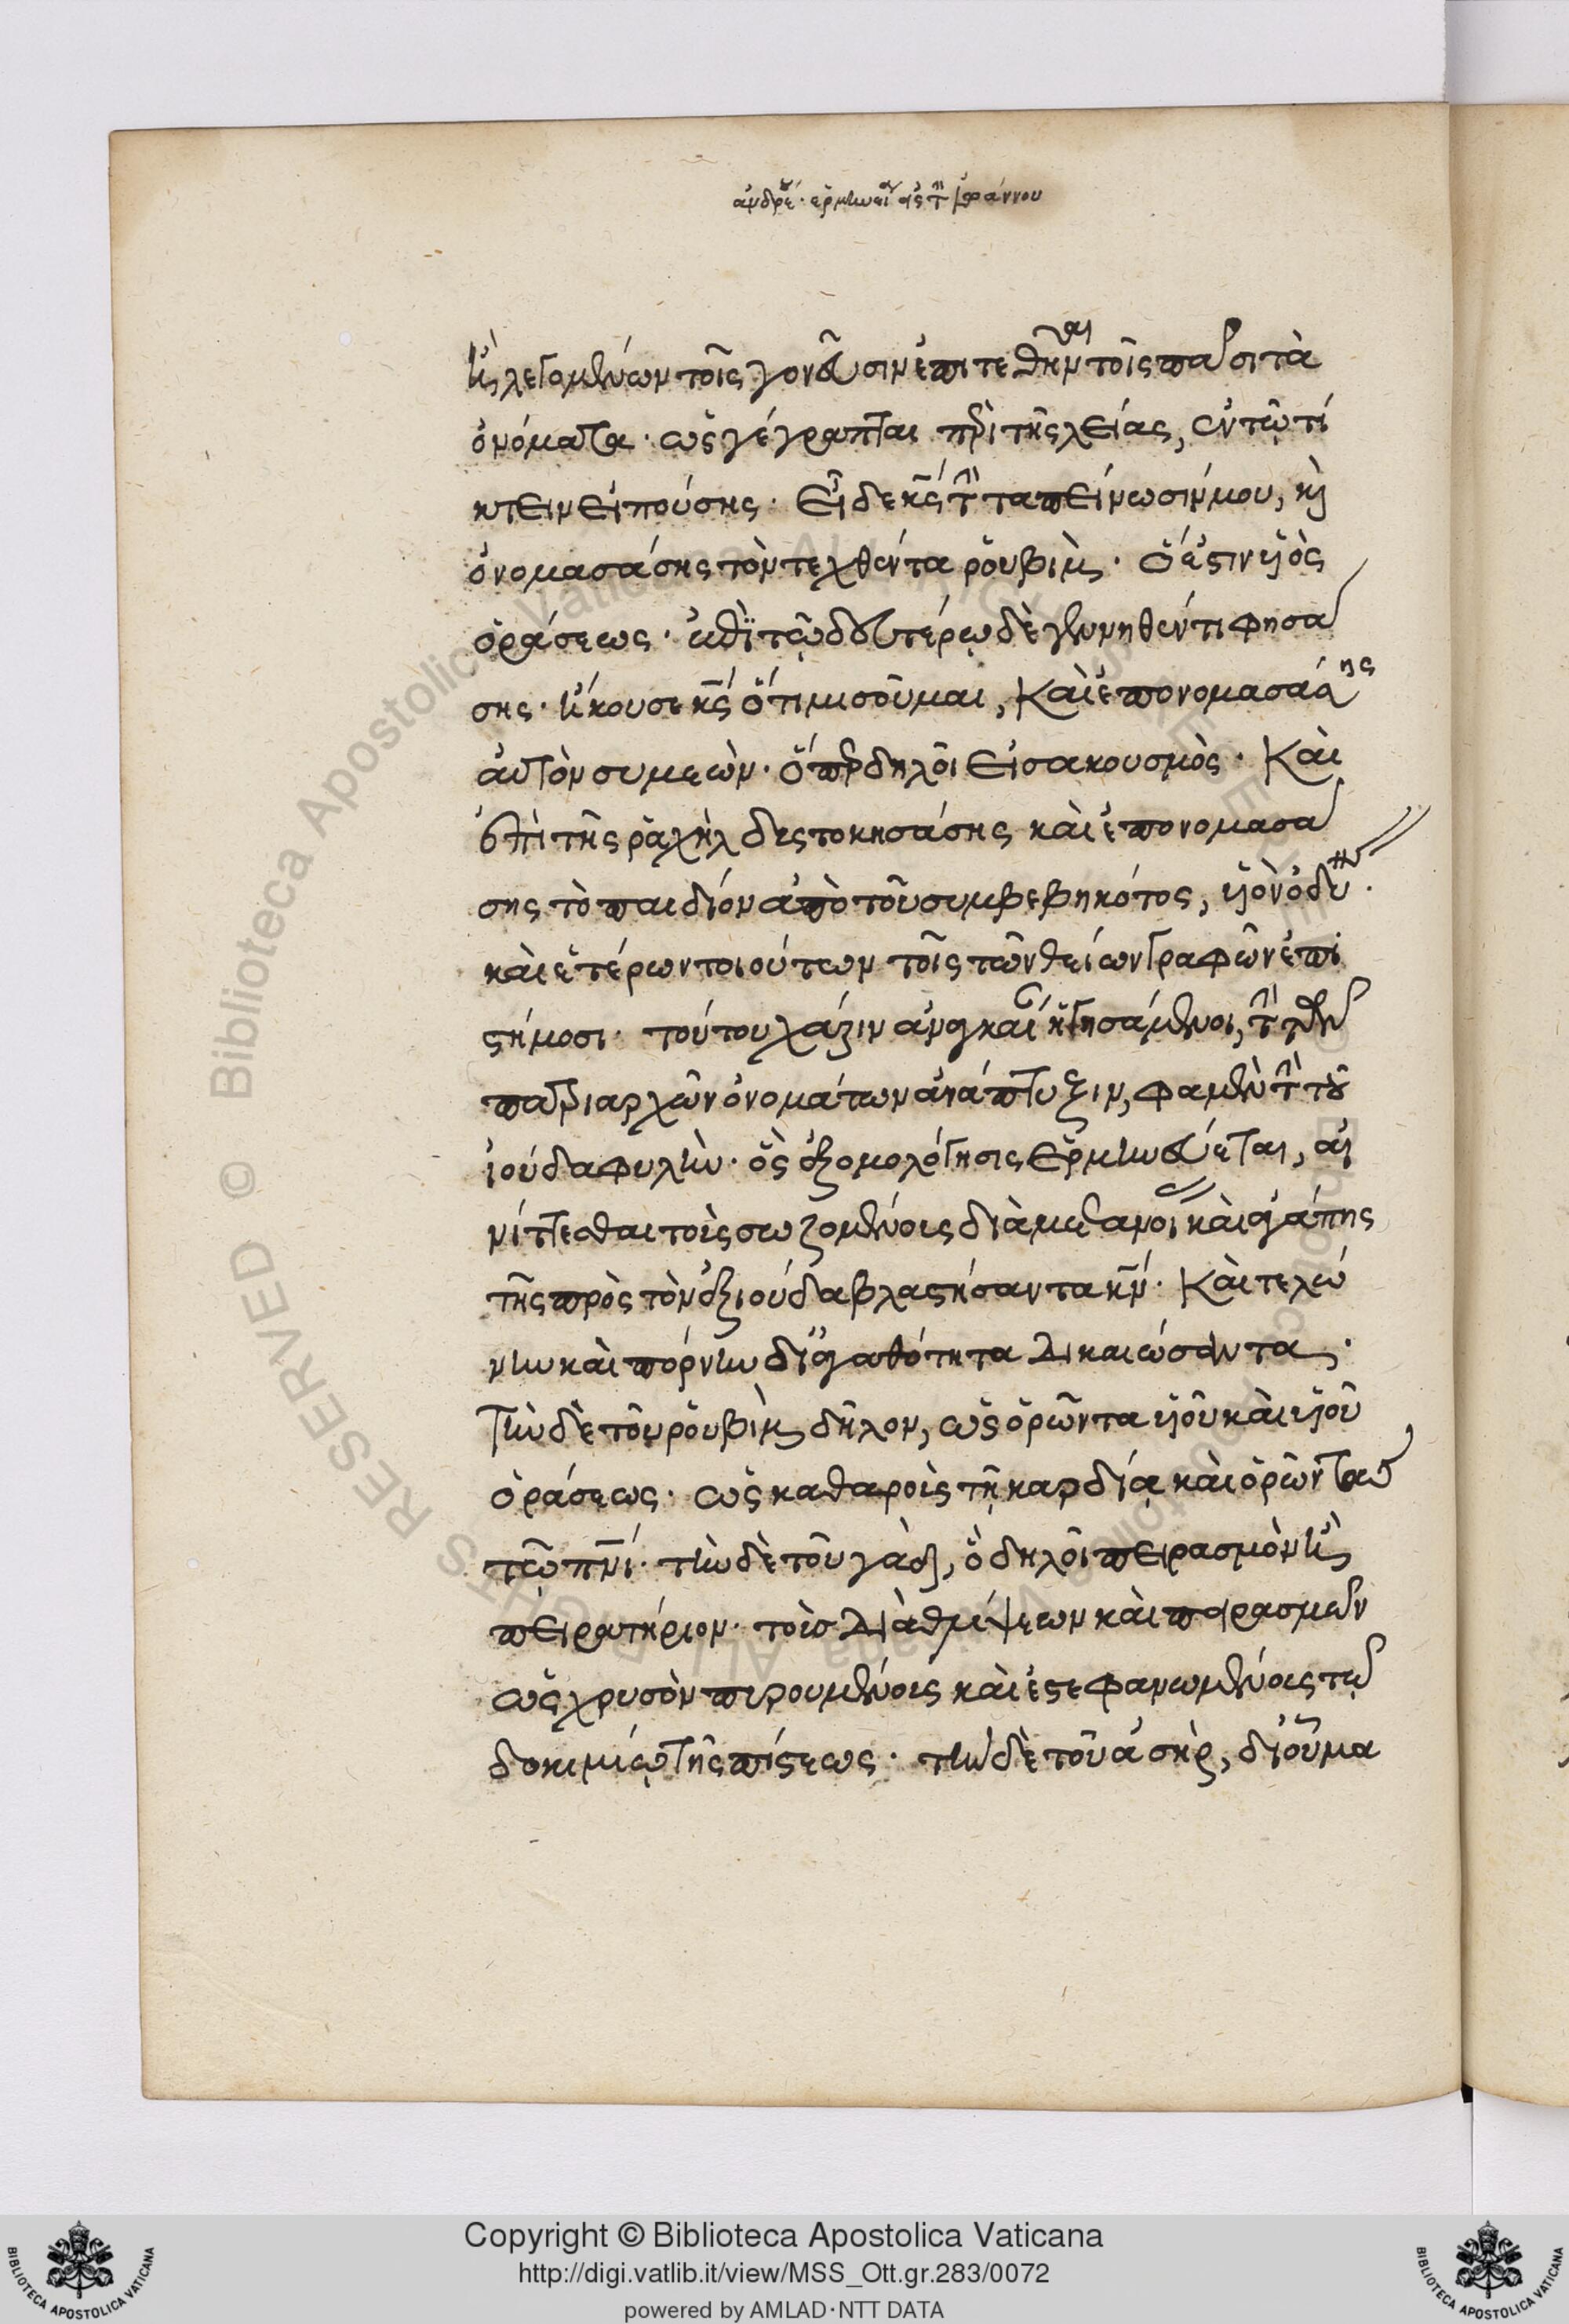 ἀνδρέ· ἑρμηνεία εἰς τὴν ἰωάννου
ἢ λεγομένων τοῖς γονεῦσιν ἐπιτεθῆναι τοῖς πᾶσι τὰ
ὀνόματα· ὡς γέγραπται περὶ τῆς λείας, ἐν τῷ τί
κτειν εἰπούσης· εἶδε κς τὴν ταπείνωσίν μου, κὶ
ὀνομασάσης τὸν τεχθέντα ῥουβὶμ· ὅ ἐστιν υἱὸς
ὁράσεως· ἐπὶ τῷ δευτέρῳ δὲ γεννηθέντι φησά
σης· ἤκουσε κς ὅτι μισοῦμαι, καὶ ἐπονομασάσης
αὐτὸν συμεὼν· ὅπερ δηλοῖ εἰσακουσμὸς· καὶ
ἐπὶ τῆς ῥαχὴλ δυστοκησάσης καὶ ἐπονομασά
σης τὸ παιδίον ἀπὸ τοῦ συμβεβηκότος, υἱὸν ὀδύνης·
καὶ ἑτέρων τοιούτων τοῖς τῶν θείων γραφῶν ἐπι
στήμοσι· τούτου χάριν ἀναγκαίαν ἡγησάμενοι, τὴν τῶν
πατριαρχῶν ὀνομάτων ἀνάπτυξιν, φαμὲν τὴν τοῦ
ἰούδα φυλὴν· ὃς ἐξομολόγησις ἑρμηνεύεται, αἰ
νίττεσθαι τοὶς σωζομένοις διὰ μετανοί καὶ ἀγάπης
τῆς πρὸς τὸν ἐξ ἰούδα βλαστήσαντα κν· καὶ τελώ
νην καὶ πόρνην δι' ἀγαθότητα δικαιώσαντα·
τὴν δὲ τοῦ ῥουβὶμ δῆλον, ὡς ὁρῶντα υἱοῦ καὶ υἱοῦ
ὁράσεως· ὡς καθαροὶς τῇ καρδίᾳ καὶ ὁρῶντας
τῷ πνι· τὴν δὲ τοῦ γὰδ, ὃ δηλοῖ πειρασμὸν ἢ
πειρατήριον· τοὶς διὰ θλίψεων καὶ πειρασμῶν
ὡς χρυσὸν πυρουμένοις καὶ ἐστεφανωμένοις τῷ
δοκιμίῳ τῆς πίστεως· τὴν δὲ τοῦ ἀσὴρ, δι' οὗ μα
Copyright © Biblioteca Apostolica Vaticana
http://digi.vatlib.it/view/MSS_Ott.gr.283/0072
powered by AMLAD·NTT DATA